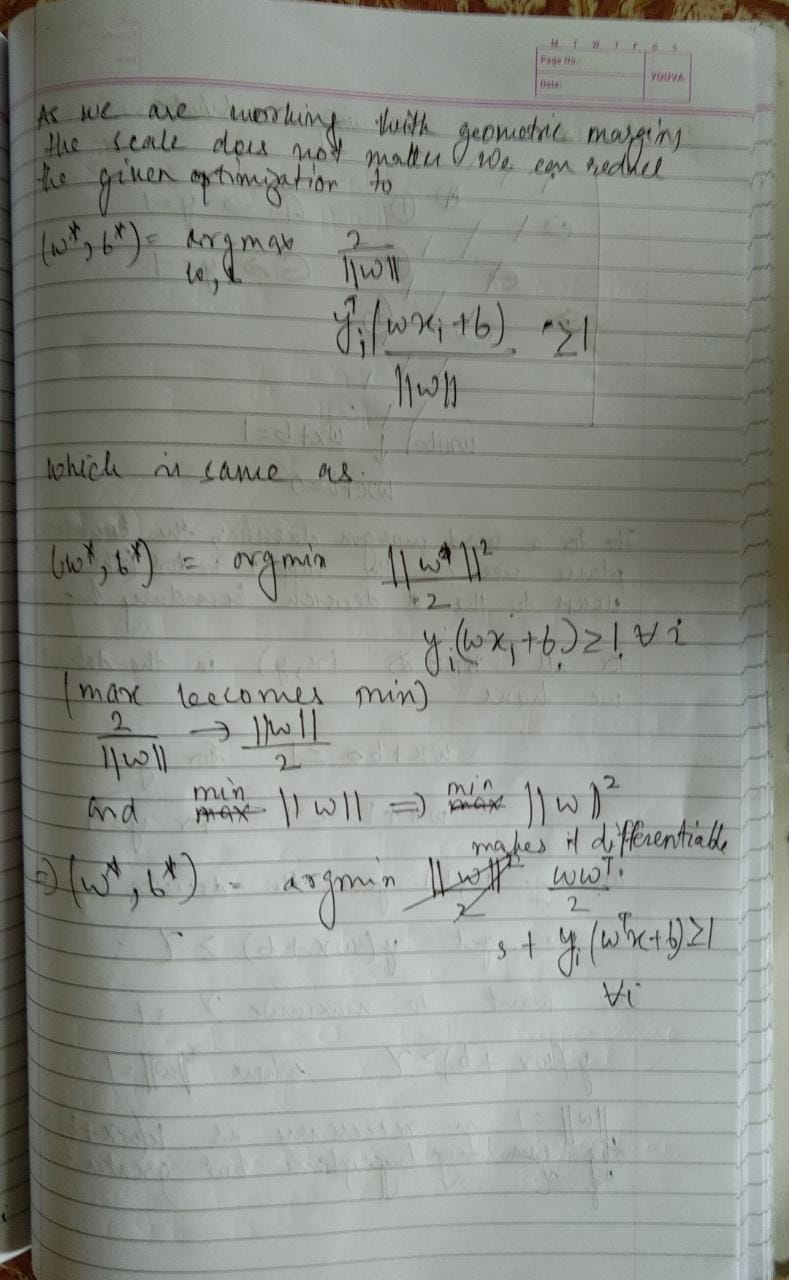 M T W T F S S
Page No.:
Date:
YOUVA
As we are working with geometric margins
the scale does not matter we can reduce
the given optimization to
(w*, b*) = argmax 2/||w||
w, b
yᵢ(wᵀxᵢ+b)/||w|| ≥1
which is same as.
(w*, b*) = argmin ||w*||²/2
yᵢ(wxᵢ+b) ≥ 1 ∀ i
(max becomes min)
2/||w|| → ||w||/2
and min ||w|| ⇒ min ||w||²
makes it differentiable
⇒ (w*, b*) = argmin wwᵀ/2
s t yᵢ(wᵀx+b) ≥1
∀i